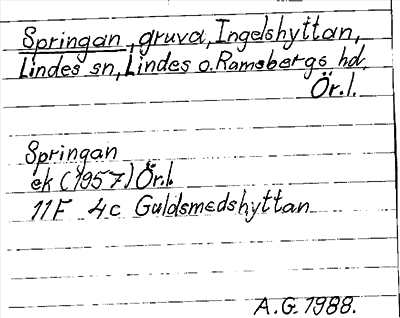 Springan, gruva, Ingelshyttan,
Lindes sn, Lindes o. Ramsbergs hd,
Ör.l.
Springan
ek (1957) Ör.l.
11F 4c Guldsmedshyttan
A.G. 1988.